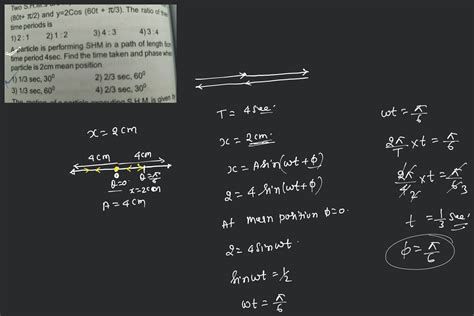 Two S.H.M.s
(60t+ π/2) and y=2Cos (60t + π/3). The ratio of
time periods is
1) 2 : 1 2) 1 : 2 3) 4 : 3 4) 3 : 4
A particle is performing SHM in a path of length
time period 4sec. Find the time taken and phase when
particle is 2cm mean position
1) 1/3 sec, 30⁰ 2) 2/3 sec, 30⁰
3) 1/3 sec, 60⁰ 4) 2/3 sec, 60⁰
S.H.M. is given
x = 2cm
4cm 4cm
0
θ=0 θ=π/6
x=2cm
A = 4cm
T = 4sec
x = 2cm
x = A sin(ωt + ϕ)
2 = 4 sin(ωt + ϕ)
At mean position ϕ=0.
2 = 4 sin ωt
sin ωt = 1/2
ωt = π/6
ωt = π/6
2π/T × t = π/6
2π/4 2 × t = π/6 3
t = 1/3 sec
ϕ = π/6